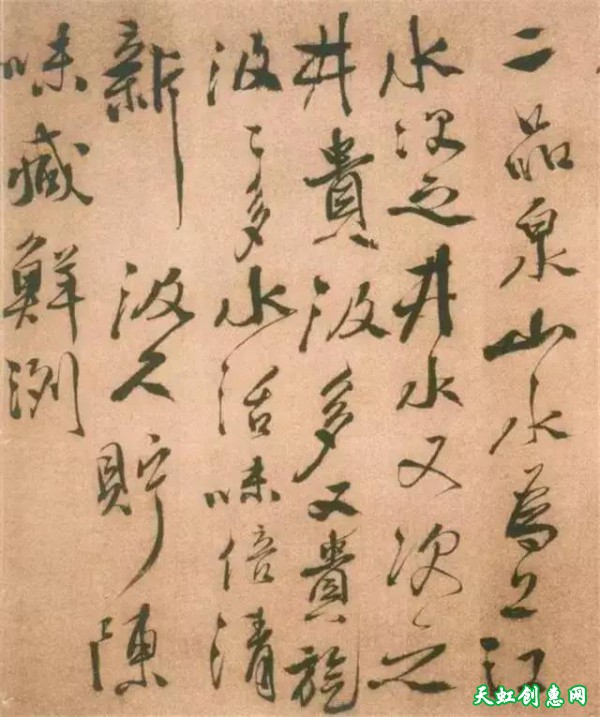 二品泉山水為上江
水次之井水又次之
井貴汲多又貴旋
汲〻多水活味倍清
新汲久貯陳
味減鮮洌
天虹创惠网